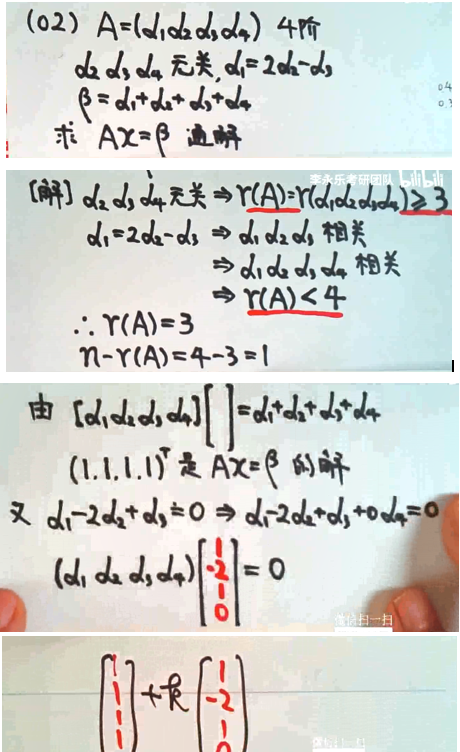 (02) A=(α₁α₂α₃α₄) 4阶
α₂α₃α₄无关,α₁=2α₂-α₃
β=α₁+α₂+α₃+α₄
求 AX=β 通解
李永乐考研团队 bilibili
[解] α₂α₃α₄无关⇒r(A)=r(α₁α₂α₃α₄)≥3
α₁=2α₂-α₃ ⇒ α₁α₂α₃ 相关
⇒ α₁α₂α₃α₄ 相关
⇒ r(A)<4
∴ r(A)=3
n-r(A)=4-3=1
由 [α₁α₂α₃α₄][ ]=α₁+α₂+α₃+α₄
(1.1.1.1)ᵀ 是 AX=β 的解
又 α₁-2α₂+α₃=0 ⇒ α₁-2α₂+α₃+0α₄=0
(α₁ α₂ α₃ α₄)[1 -2 1 0]=0
[1 1 1 1]+k[1 -2 1 0]